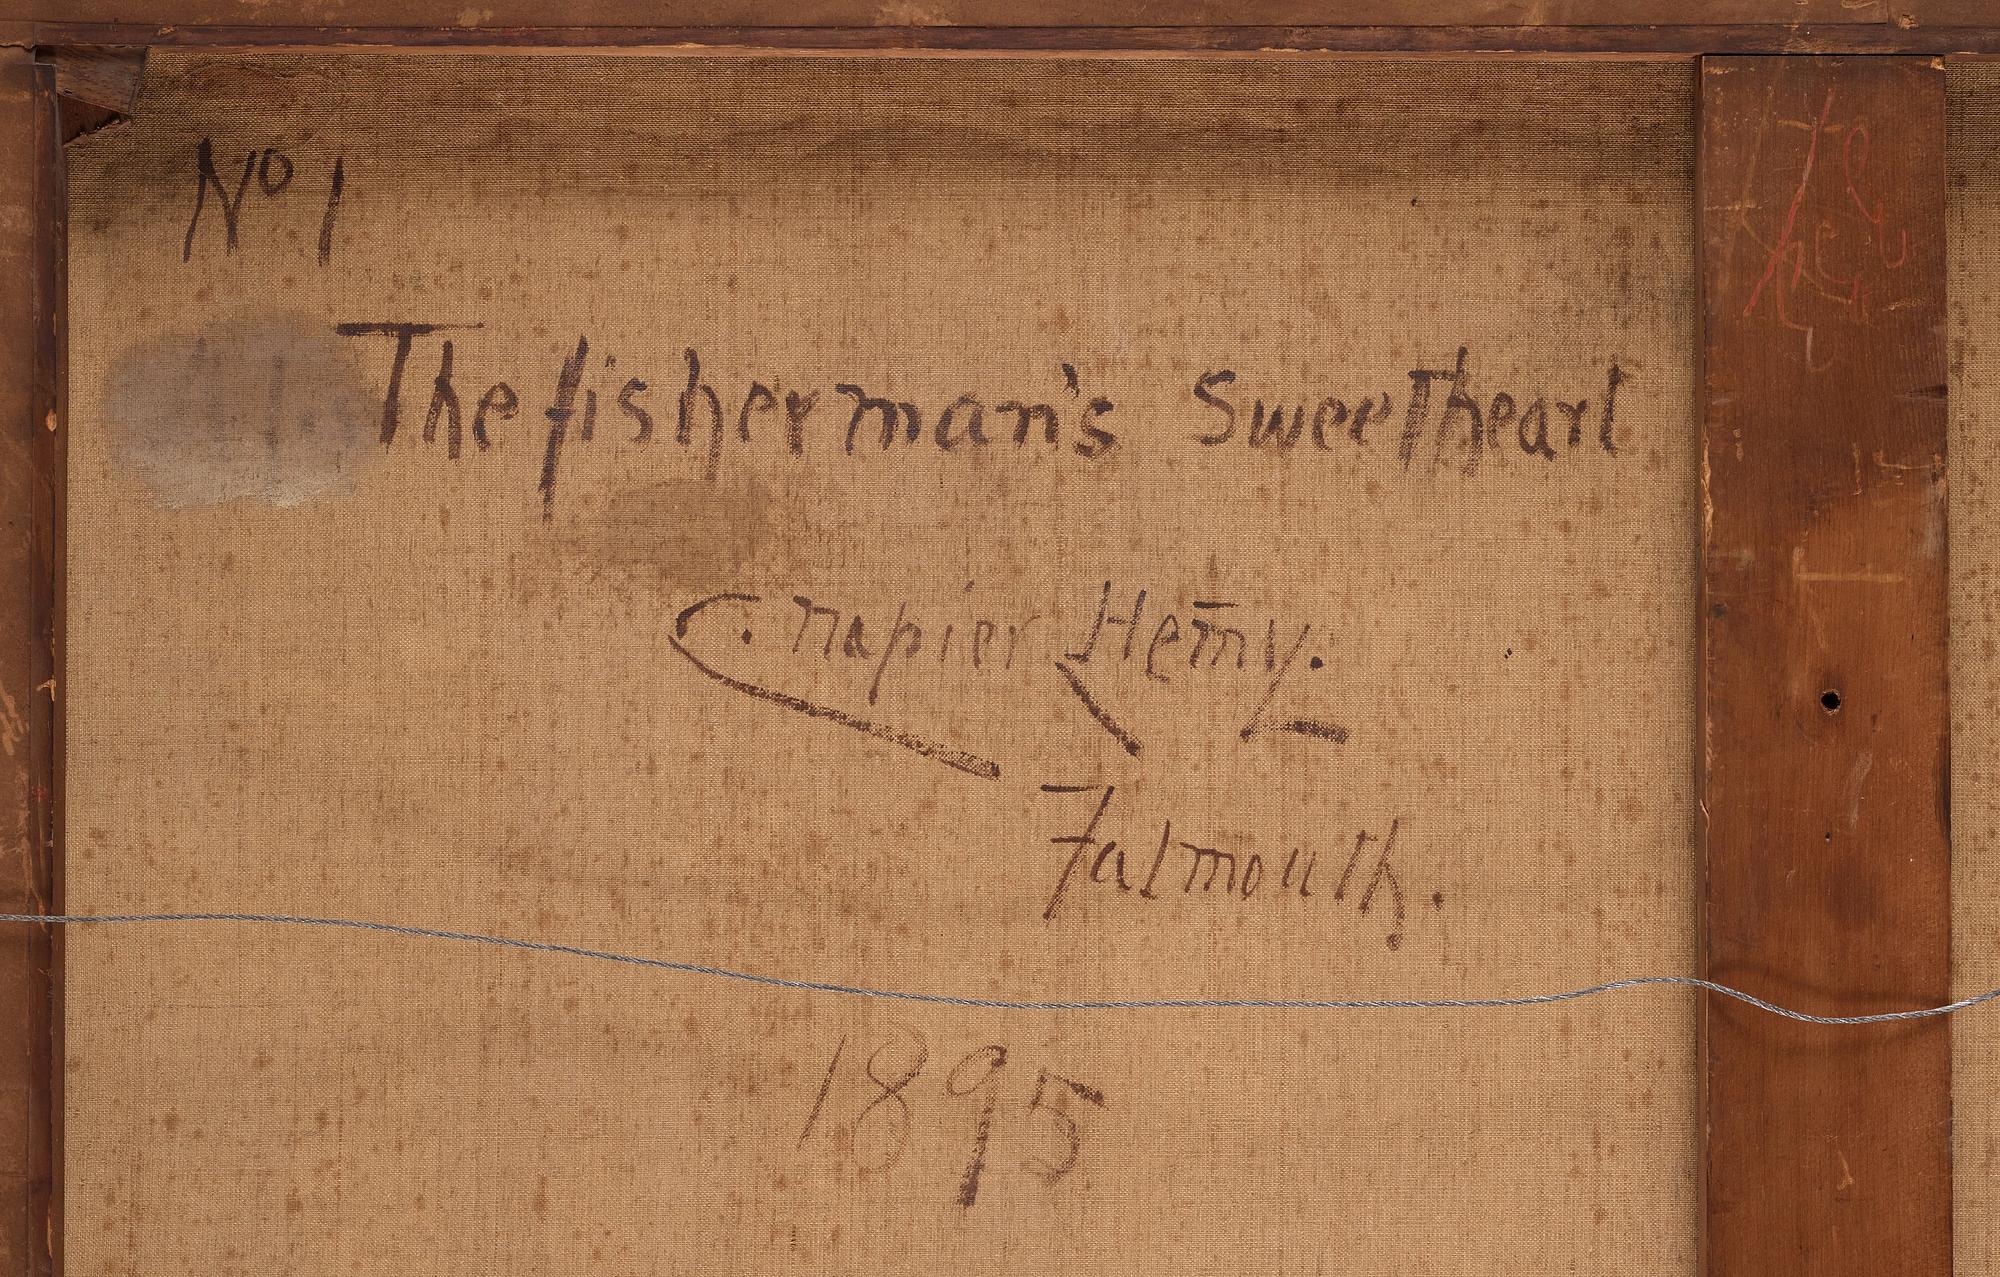 No 1
The fisherman's Sweetheart
C. napier Hemy.
Falmouth.
1895